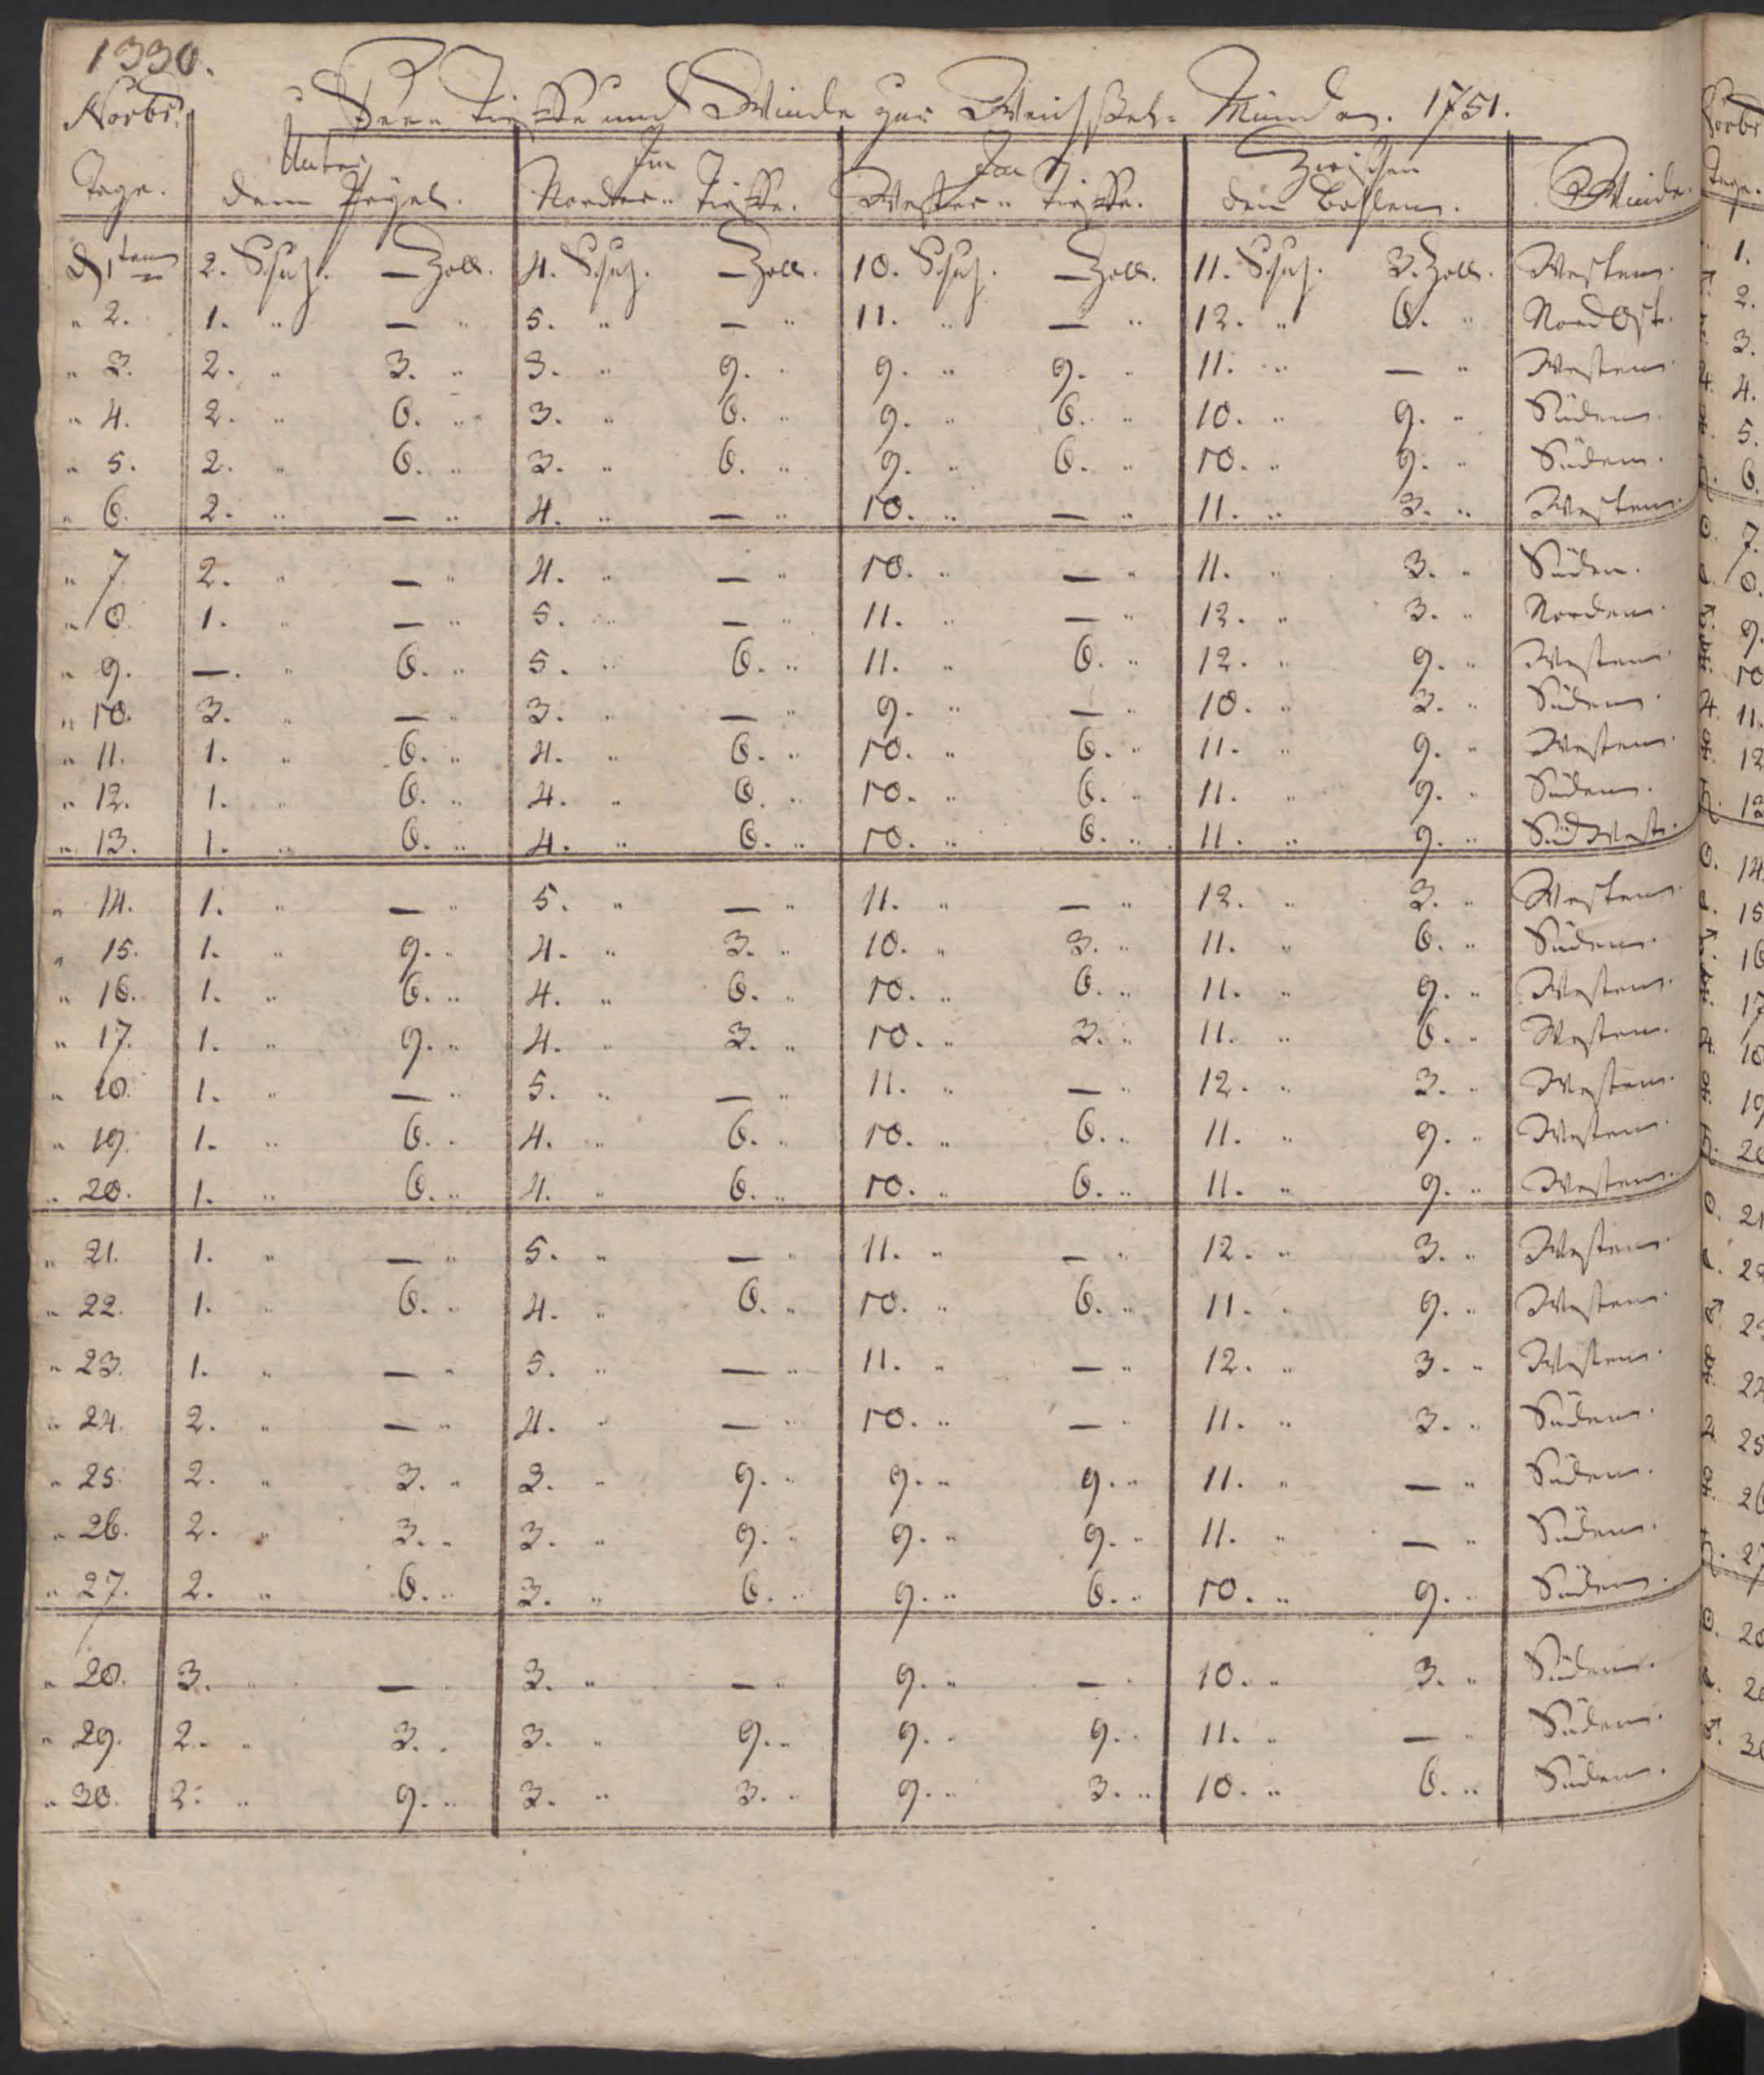 1330.
Norbr.
See- Tieffe und Winde zur Weichßel- Münden. 1751.
Tage. Unter dem Pegel. Im Norder- Tieffe. Im Wester- Tieffe. Zwischen den Bohlen. Winde.
D 1ten 2. Schuh. — Zoll. 4. Schuh. — Zoll. 10. Schuh. — Zoll. 11. Schuh. 3. Zoll. Westen.
" 2. 1. " — " 5. " — " 11. " — " 12. " 6. " NordOst.
" 3. 2. " 3. " 3. " 9. " 9. " 9. " 11. " — " Westen.
" 4. 2. " 6. " 3. " 6. " 9. " 6. " 10. " 9. " Süden.
" 5. 2. " 6. " 3. " 6. " 9. " 6. " 10. " 9. " Süden.
" 6. 2. " — " 4. " — " 10. " — " 11. " 3. " Westen.
" 7. 2. " — " 4. " — " 10. " — " 11. " 3. " Süden.
" 8. 1. " — " 5. " — " 11. " — " 12. " 3. " Norden.
" 9. —. " 6. " 5. " 6. " 11. " 6. " 12. " 9. " Westen.
" 10. 3. " — " 3. " — " 9. " — " 10. " 3. " Süden.
" 11. 1. " 6. " 4. " 6. " 10. " 6. " 11. " 9. " Westen.
" 12. 1. " 6. " 4. " 6. " 10. " 6. " 11. " 9. " Süden.
" 13. 1. " 6. " 4. " 6. " 10. " 6. " 11. " 9. " SüdWest.
" 14. 1. " — " 5. " — " 11. " — " 12. " 3. " Westen.
" 15. 1. " 9. " 4. " 3. " 10. " 3. " 11. " 6. " Süden.
" 16. 1. " 6. " 4. " 6. " 10. " 6. " 11. " 9. " Westen.
" 17. 1. " 9. " 4. " 3. " 10. " 3. " 11. " 6. " Westen.
" 18. 1. " — " 5. " — " 11. " — " 12. " 3. " Westen.
" 19. 1. " 6. " 4. " 6. " 10. " 6. " 11. " 9. " Westen.
" 20. 1. " 6. " 4. " 6. " 10. " 6. " 11. " 9. " Westen.
" 21. 1. " — " 5. " — " 11. " — " 12. " 3. " Westen.
" 22. 1. " 6. " 4. " 6. " 10. " 6. " 11. " 9. " Westen.
" 23. 1. " — " 5. " — " 11. " — " 12. " 3. " Westen.
" 24. 2. " — " 4. " — " 10. " — " 11. " 3. " Süden.
" 25. 2. " 3. " 3. " 9. " 9. " 9. " 11. " — " Süden.
" 26. 2. " 3. " 3. " 9. " 9. " 9. " 11. " — " Süden.
" 27. 2. " 6. " 3. " 6. " 9. " 6. " 10. " 9. " Süden.
" 28. 3. " — " 3. " — " 9. " — " 10. " 3. " Süden.
" 29. 2. " 3. " 3. " 9. " 9. " 9. " 11. " — " Süden.
" 30. 2. " 9. " 3. " 3. " 9. " 3. " 10. " 6. " Süden.